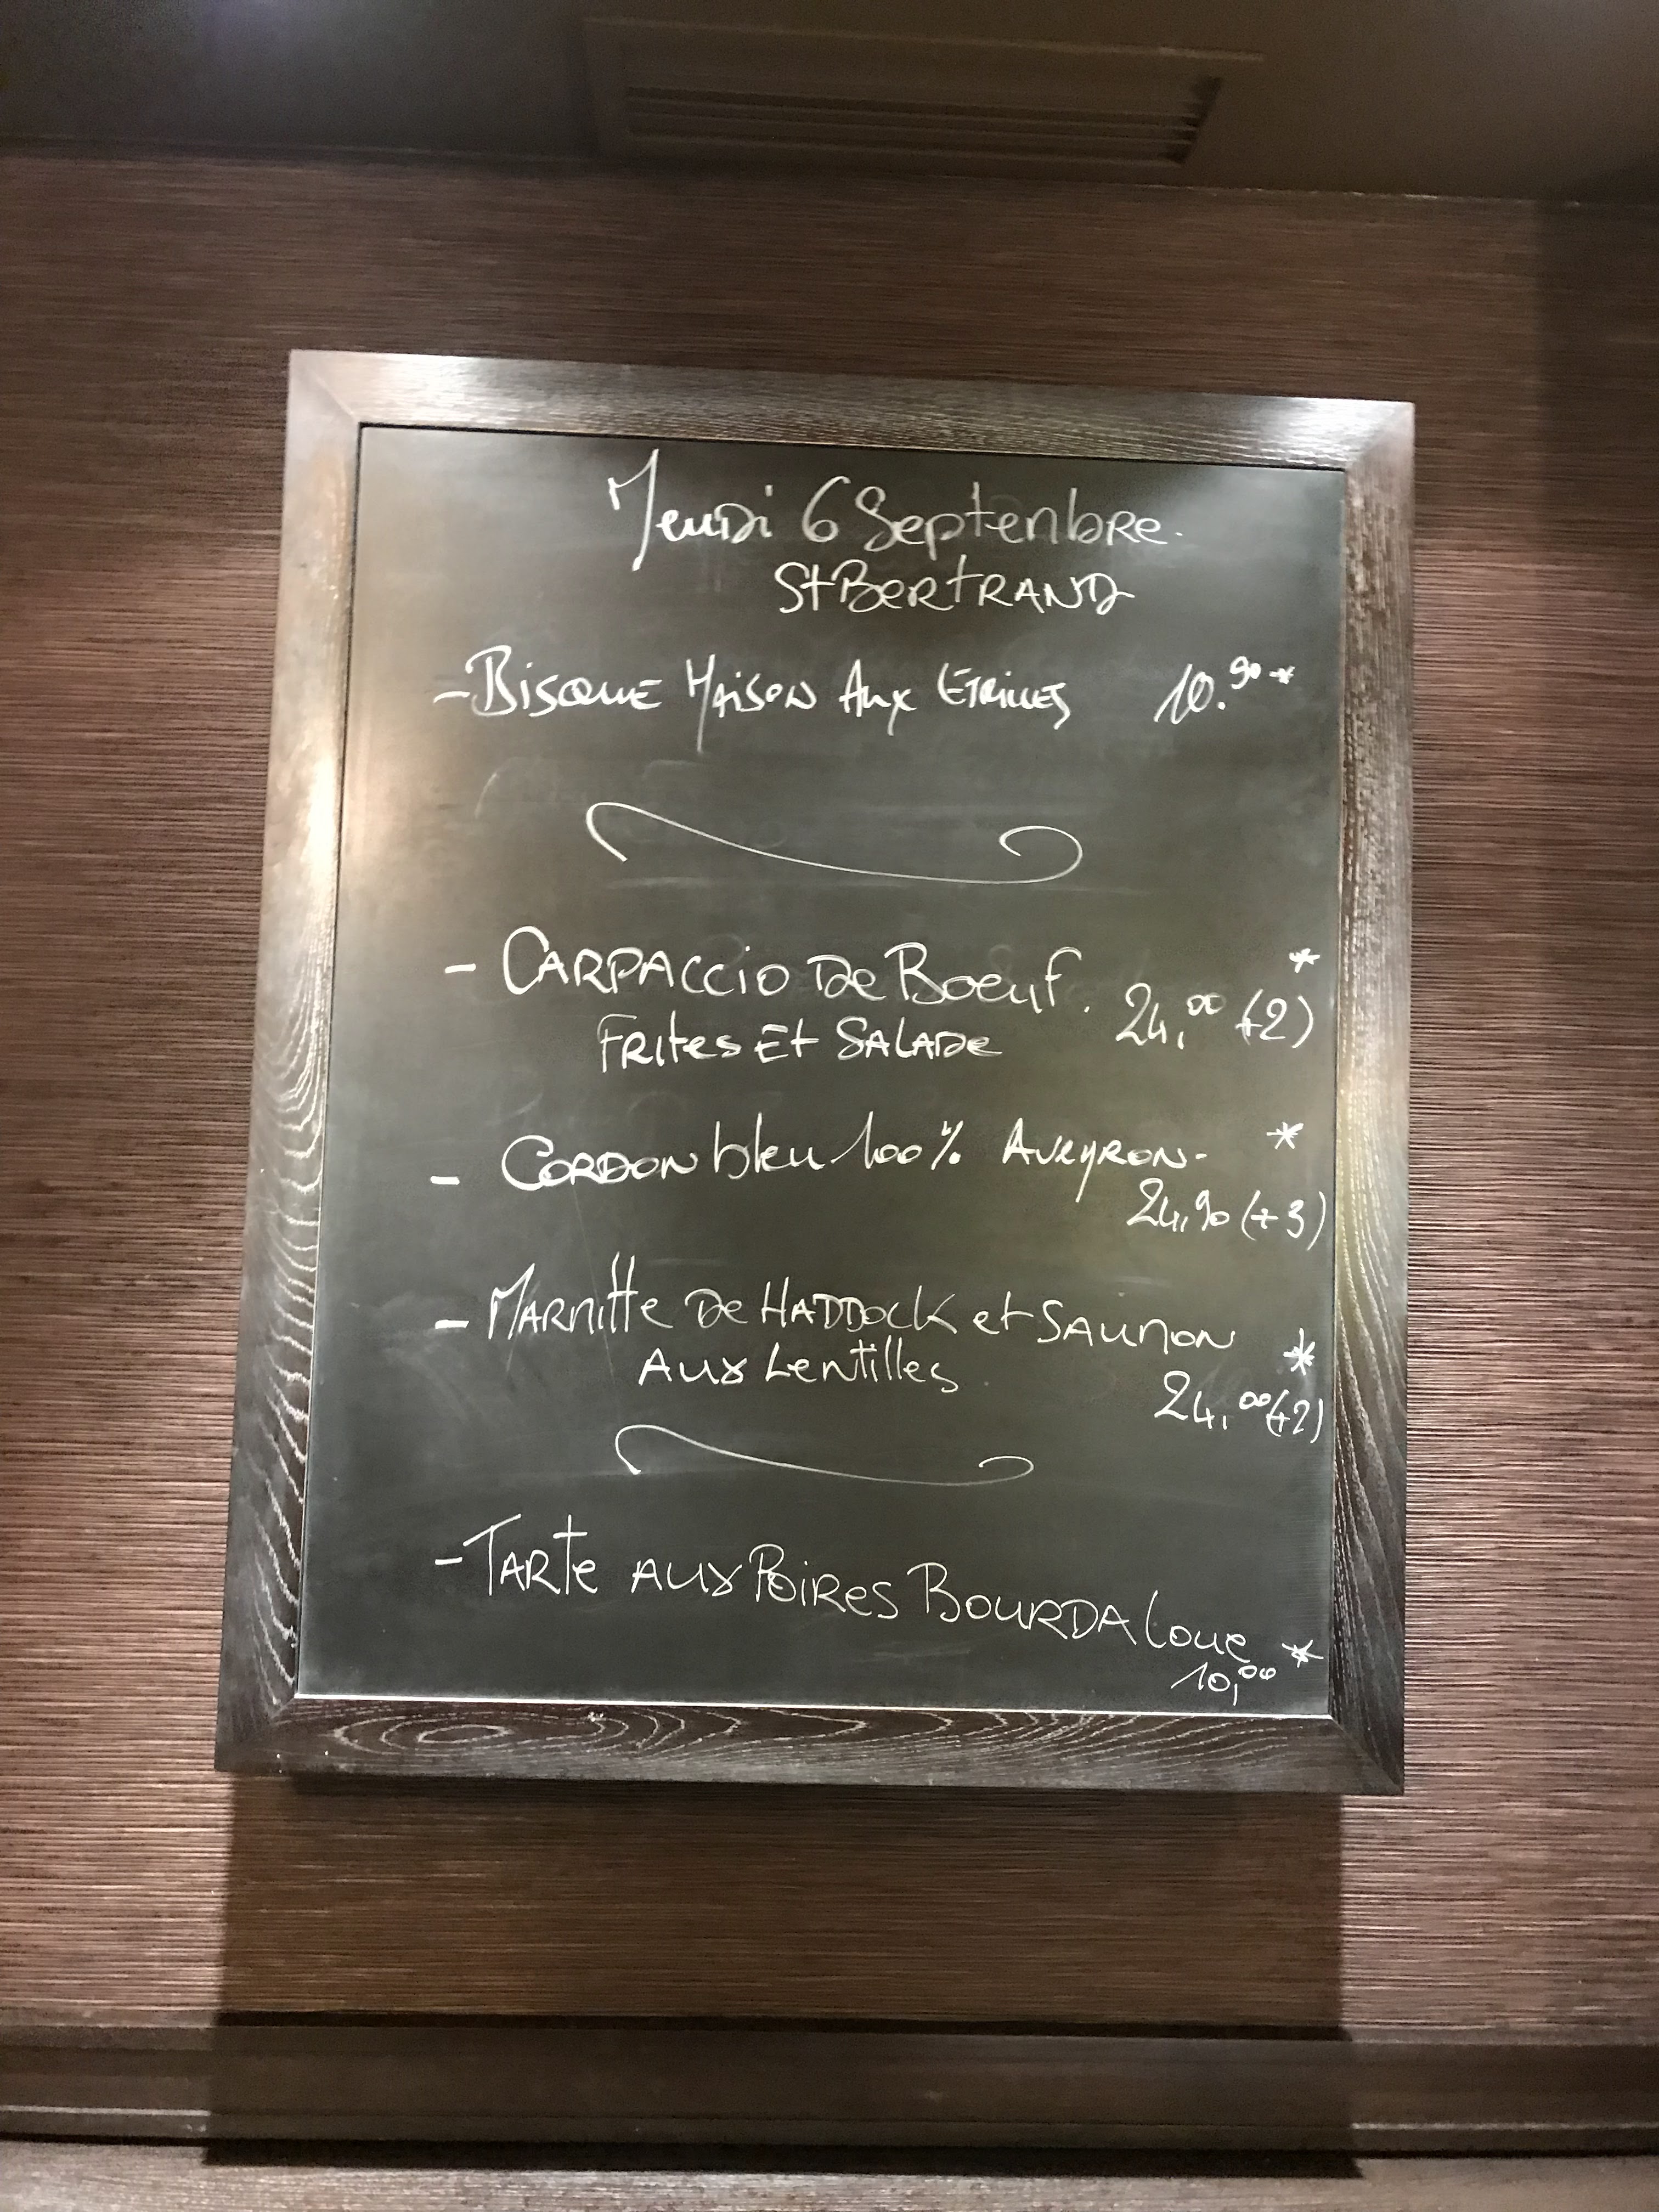 Jeudi 6 Septenbre.
St Bertrand
- Bisque Maison Aux Etrilles 10.90 *
- Carpaccio De Boeuf. 24,00 (+2) *
Frites Et Salade
- Cordon bleu 100% Aveyron- *
24,90 (+3)
- Marmitte De Haddock et Saumon *
Aux Lentilles 24,00 (+2)
- Tarte aux Poires Bourdaloue *
10,00